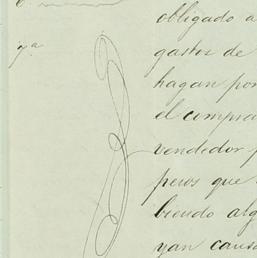 obligado a
7ª gastos de
hagan por
el compra
vendedor
pesos que
biendo alg
yan caus